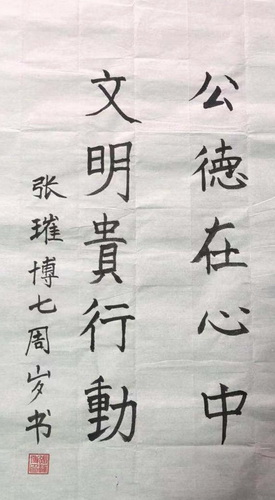 公德在心中
文明貴行動
张璀博七周岁书